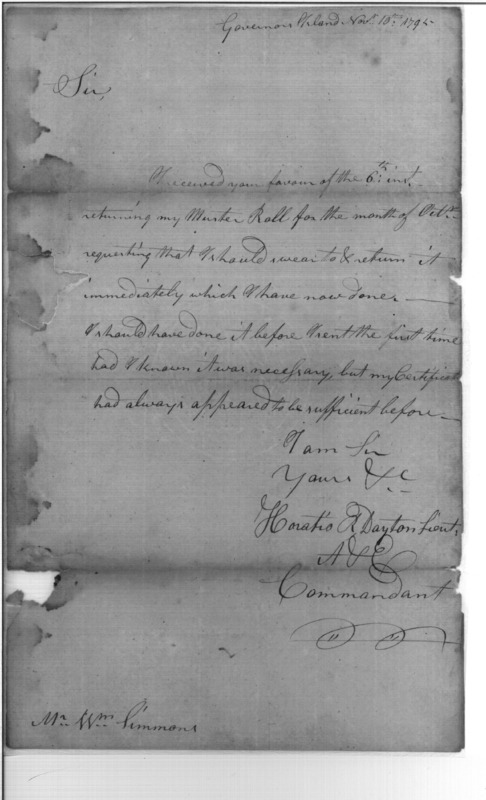 Governors Island Nov.r 10th 1795
Sir,
I received your favour of the 6th: inst.
returning my Muster Roll for the month of Octr
requesting that I should swear to & return it
immediately which I have now done —
I should have done it before I sent the first time
had I known it was necessary, but my Certificate
had always appeared to be sufficient before —
I am Sir
Yours &c
Horatio R Dayton Lieut.
A & E
Commandant
Mr Wm Simmons